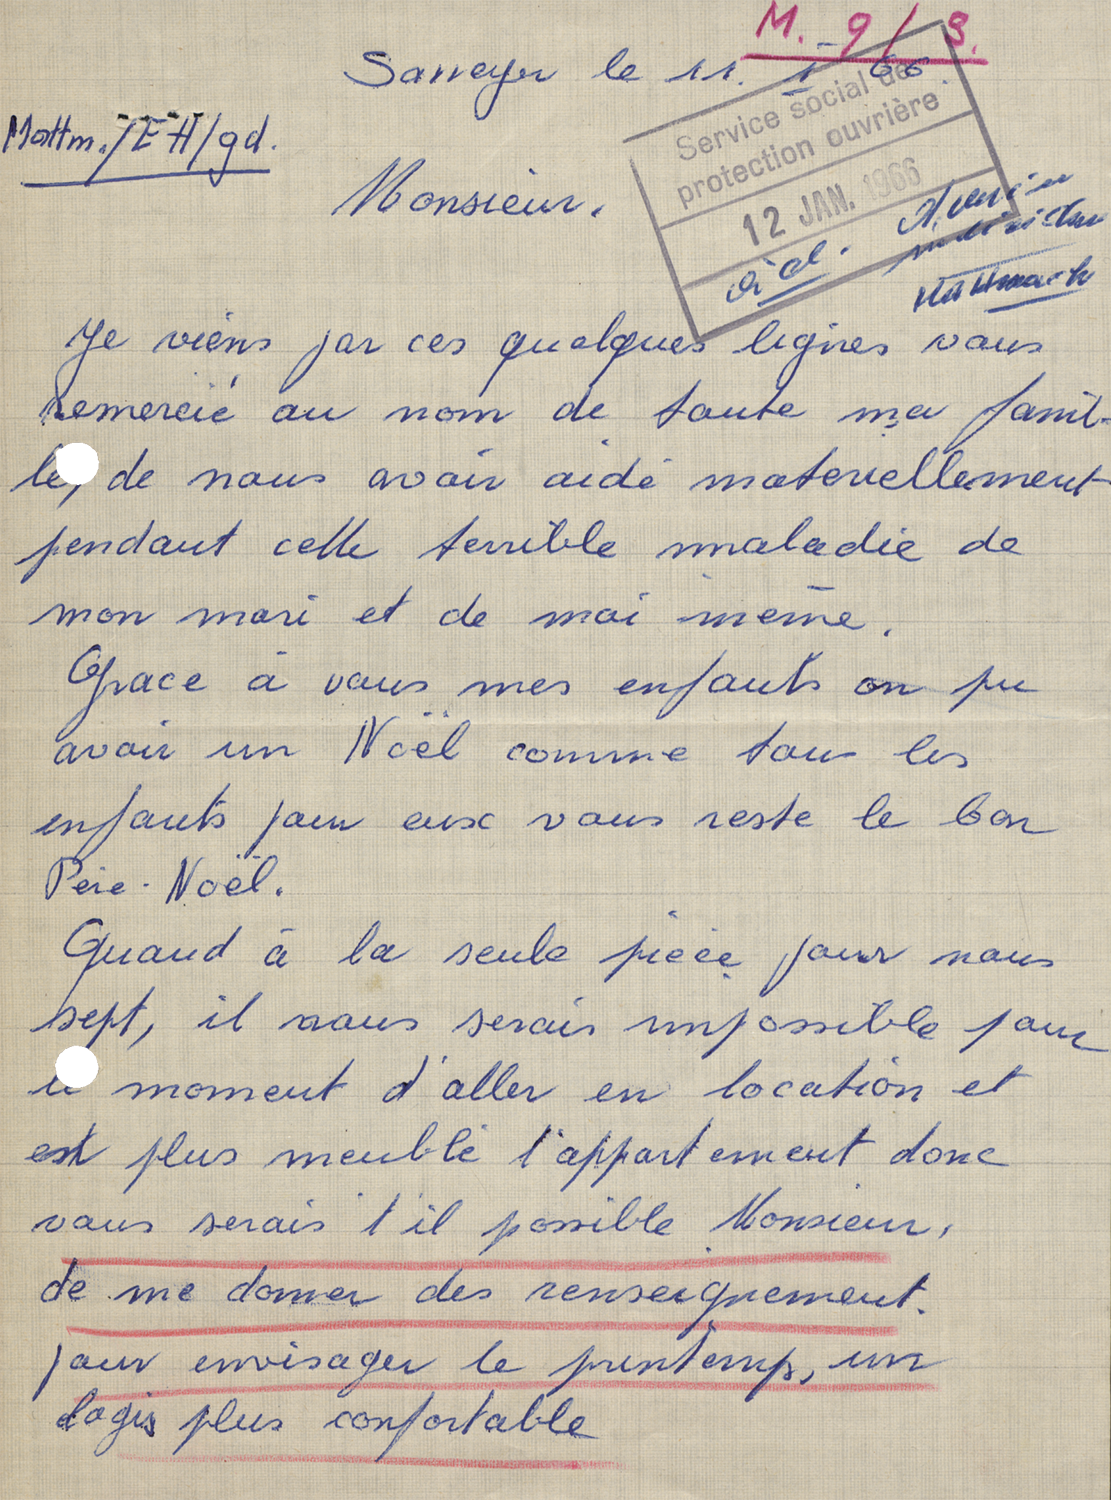 M. 9 / 3.
Sanreyer le 11. 1 66
Service social de
protection ouvrière
12 JAN. 1966
Mottm./EH/gd.
Monsieur.
à cl.
Je viens par ces quelques lignes vous
remercié au nom de toute ma famil-
le, de nous avoir aidé materiellement
pendant cette terrible maladie de
mon mari et de moi même.
Grace à vous mes enfants on pu
avoir un Noël comme tous les
enfants pour eux vous reste le bon
Père-Noël.
Quand à la seule pièce pour nous
sept, il nous serais impossible pour
le moment d'aller en location et
est plus meublé l'appartement donc
vous serais t'il possible Monsieur,
de me donner des renseignement.
pour envisager le printemp, un
logis plus confortable